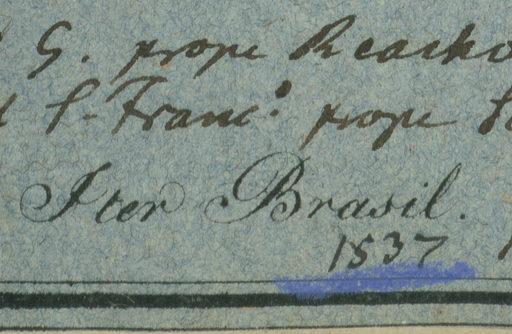 G. prope Reacho
S. Franc.º prope
Iter Brasil.
1537